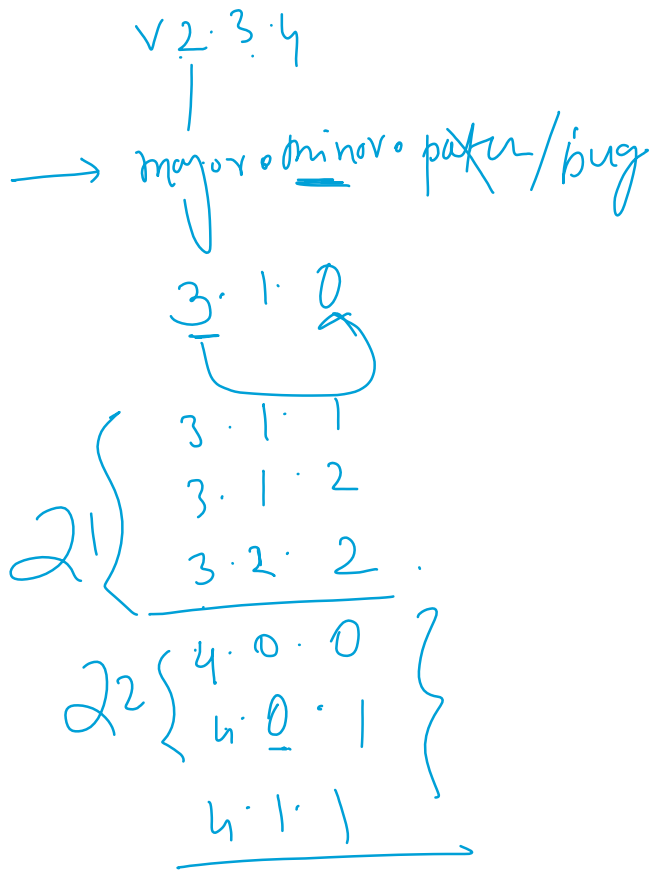 v 2.3.4
major.minor.patch/bug
3.1.0
3.1.1
3.1.2
21
3.2.2.
4.0.0
22
4.0.1
4.1.1